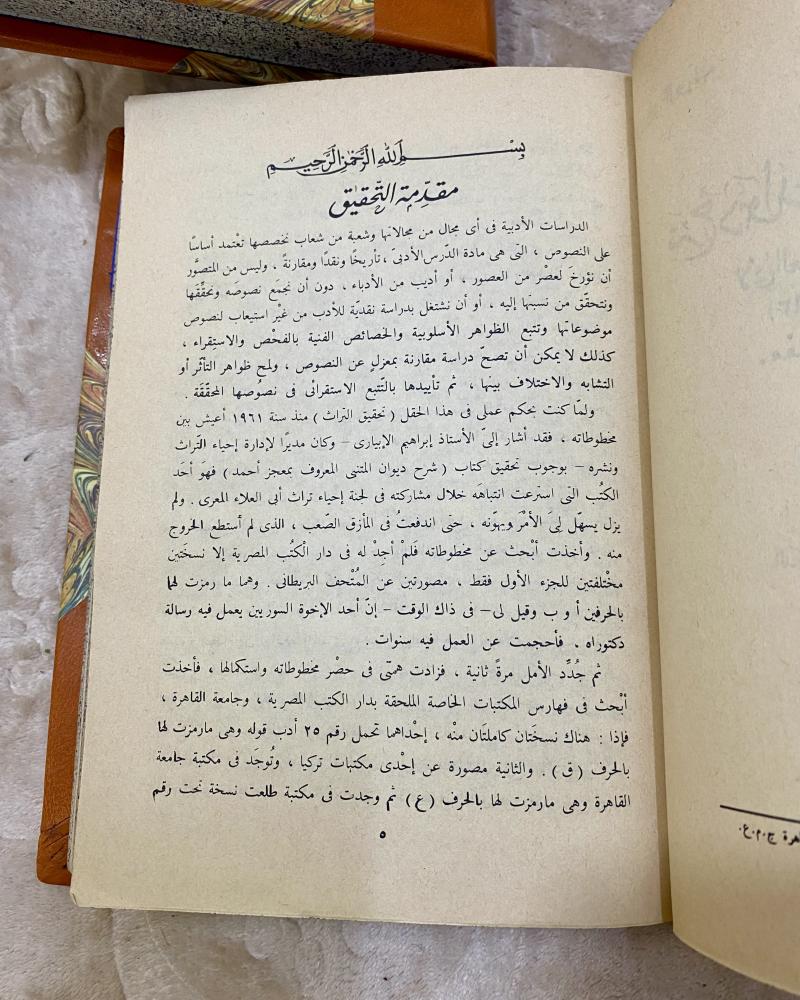 بِسْمِ اللهِ الرَّحْمٰنِ الرَّحِيمِ
مقدّمة التّحقيق
الدراسات الأدبية فى أى مجال من مجالاتها وشعبة من شعاب تخصصها تعْتمد أساسًا
على النصوص ، التى هى مادة الدّرس الأدبىّ ، تأريخًا ونقدًا ومقارنةً . وليس من المتصوَّر
أن نؤرخَ لعصْر من العصور ، أو أديب من الأدباء ، دون أن نجمَع نصوصَه ونحقِّقَها
ونتحقّق من نسبتها إليه ، أو أن نشتغل بدراسة نقديّة للأدب من غيْر استيعاب لنصوص
موضوعاتها وتتبع الظواهر الأسلوبية والخصائص الفنية بالفحْص والاستقراء ،
كذلك لا يمكن أن تصحّ دراسة مقارنة بمعزلٍ عن النصوص ، ولمح ظواهر التأثّر أو
التشابه والاختلاف بينها ، ثم تأييدها بالتّتبع الاستقرائى فى نصوصها المحقّقة .
ولمّا كنت بحكم عملى فى هذا الحقل ( تحقيق التراث ) منذ سنة ١٩٦١ أعيش بين
مخطوطاته ، فقد أشار إلىّ الأستاذ إبراهيم الإبيارى – وكان مديرًا لإدارة إحياء التّراث
ونشره – بوجوب تحقيق كتاب ( شرح ديوان المتنبى المعروف بمعجز أحمد ) فهوَ أحَد
الكتُب التى استرعت انتباهَه خلال مشاركته فى لجنة إحياء تراث أبى العلاء المعرى . ولم
يزل يسهّل لِىَ الأمْرَ ويهوّنه ، حتى اندفعتُ فى المأزق الصّعب ، الذى لم أستطع الخروج
منه . وأخذت أبْحث عن مخطوطاته فَلمْ أجِدْ له فى دار الكُتب المصرية إلا نسخَتين
مخْتلفتين للجزء الأول فقط ، مصورتين عن المُتْحف البريطانى . وهما ما رمزت لهما
بالحرفين أ و ب وقيل لى – فى ذاك الوقت – إنّ أحد الإخوة السوريين يعمل فيه رسالة
دكتوراه . فأحجمت عن العمل فيه سنوات .
ثم جُدِّد الأمل مرةً ثانية ، فزادت همتى فى حصْر مخطوطاته واستكمالها ، فأخذت
أبْحث فى فهارس المكتبات الخاصة الملحقة بدار الكتب المصرية ، وجامعة القاهرة ،
فإذا : هناك نسخَتان كاملتَان منْه ، إحْداهما تحمل رقم ٢٥ أدب قوله وهى مارمزت لها
بالحرف ( ق ) . والثانية مصورة عن إحْدى مكتبات تركيا ، وتُوجَد فى مكتبة جامعة
القاهرة وهى مارمزت لها بالحرف ( ع ) ثم وجدت فى مكتبة طلعت نسخة تحت رقم
٥